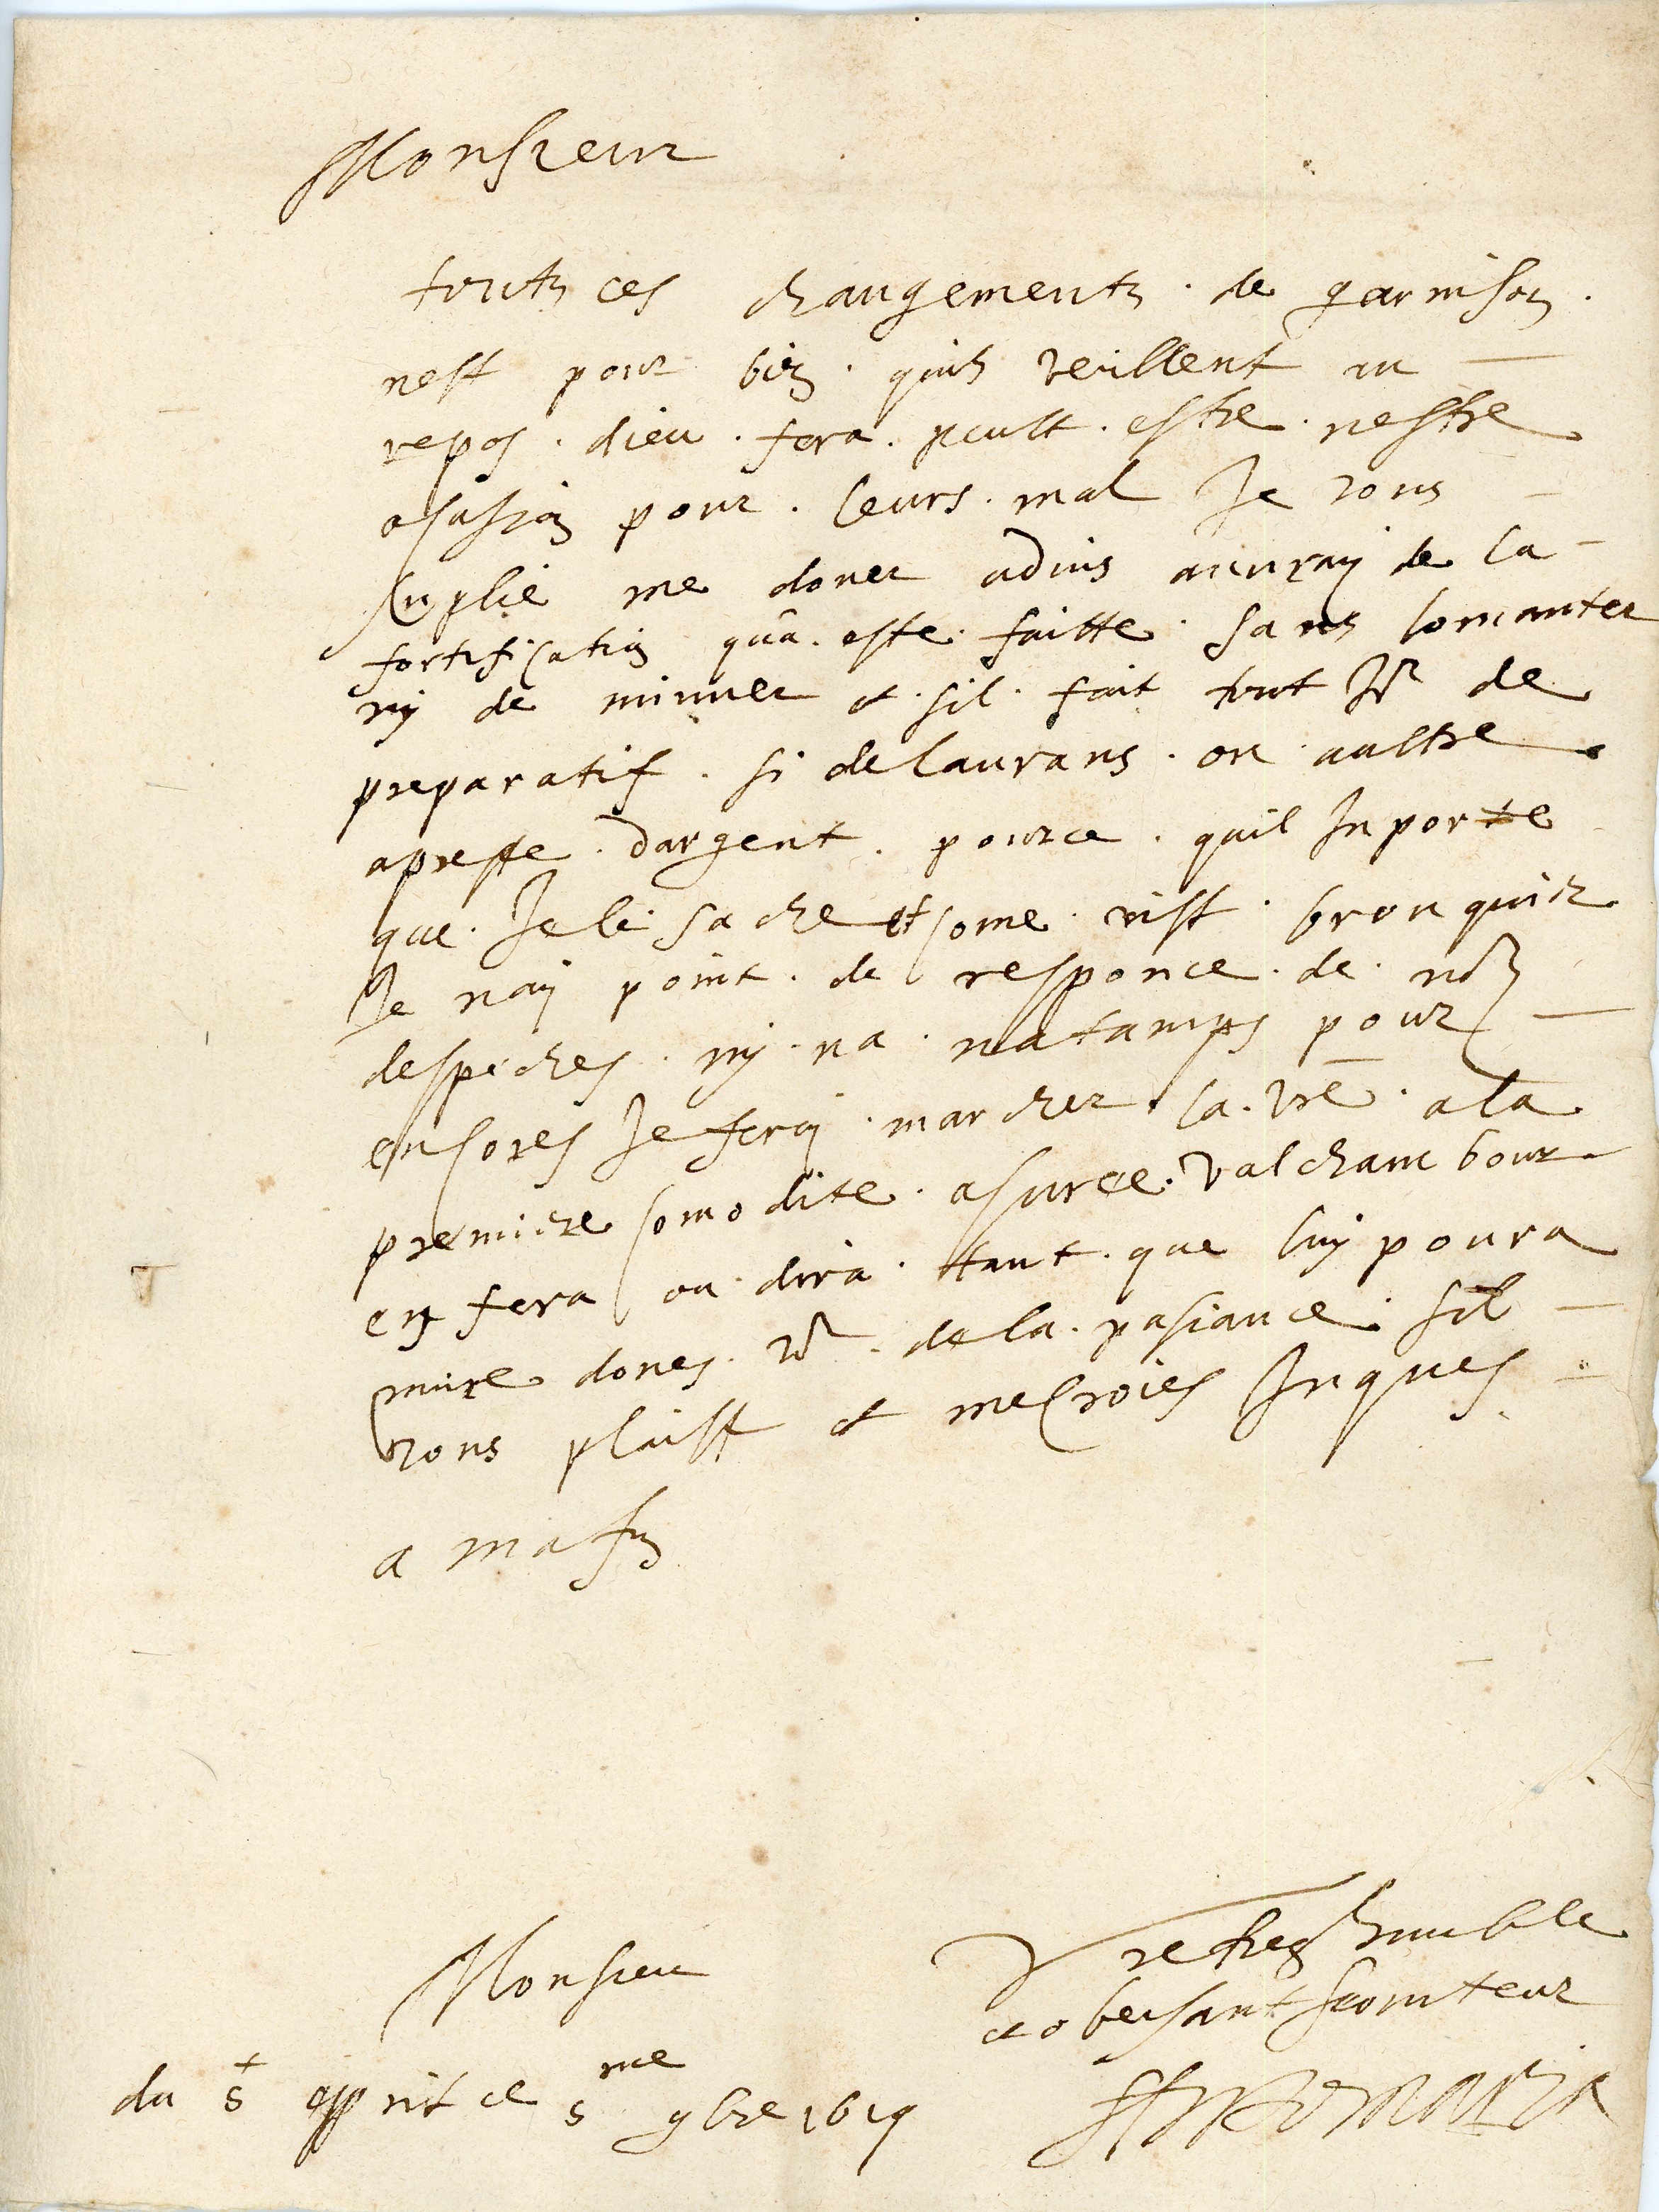 Monsieur
touts ces changements . de garnison .
nest pour bien . quils veillent au
repos . dieu . fera . peult . estre . nestre
ocasion pour . leurs . mal Je vous
suplie me doner advis au vray de la
fortification qua . este . faitte . sans
ny de minner et . sil . fait tout Jr de
preparatif . si de laurans . ou aultre
apreste . dargent . pource . quil Inporte
que . Je le sache et come . vist . bronquier
Je nay point . de responce . de . nos
despeches . ny . na . na tamps pour
encores Je feray . marcher . la . vre . a la
premiere comodite . asuree . valchambour
en fera ou dira . ttant . que luy poura
nuire dones . . de la . pasiance . sil
vous plaist et me croies Jnques
a ma fin
Monsieur
Vre tres humble
et obeisant serviteur
du st esprit ce 5me 9bre 1619